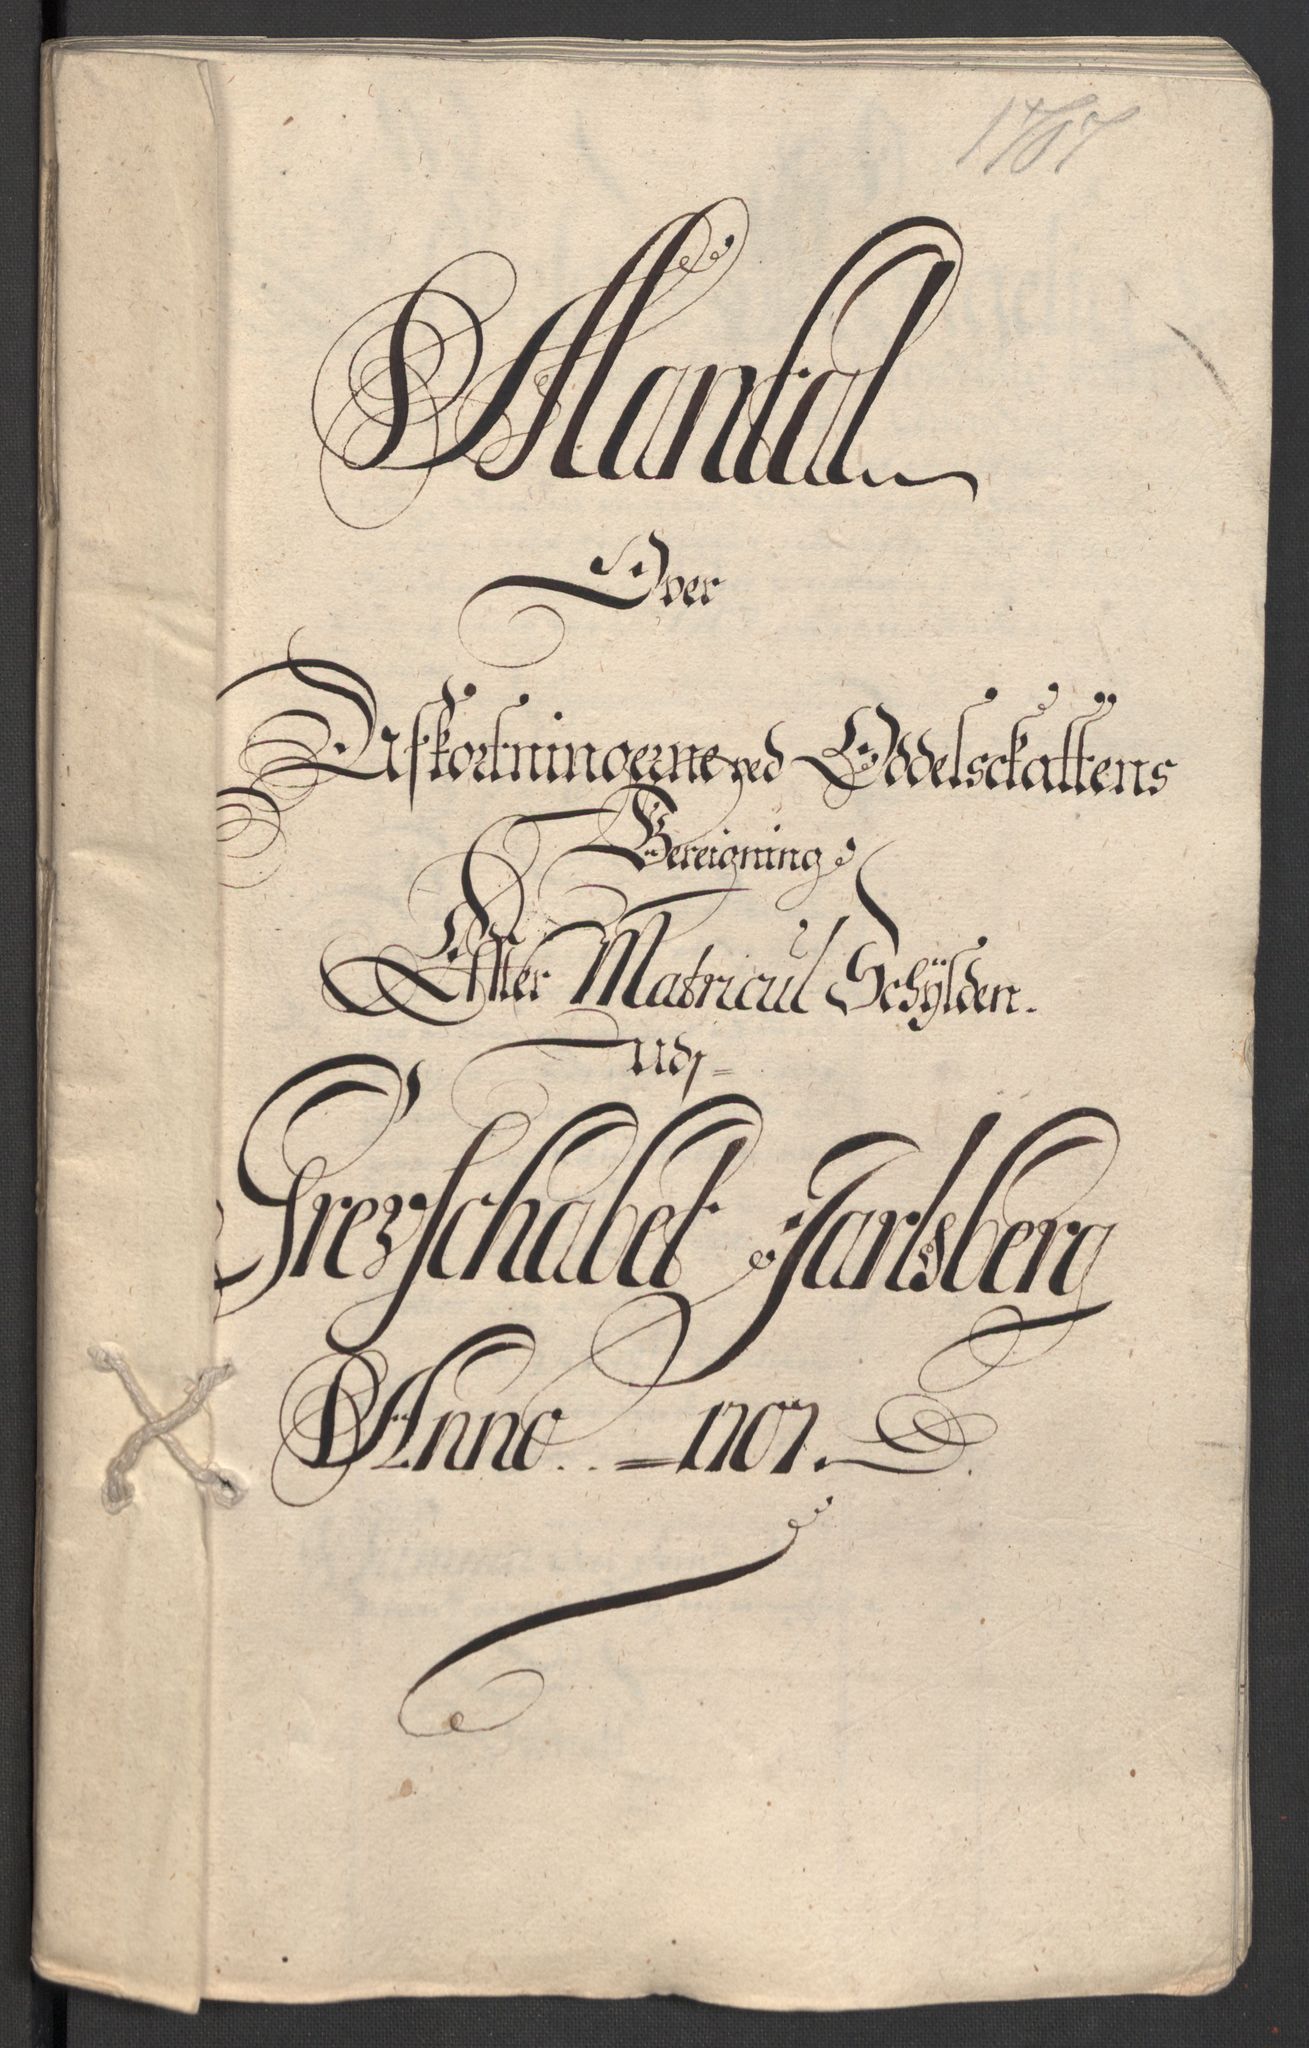 1707
Mantal
Over
Afkortningerne ved Oddelsckattens
Bereigning
Effter Matricul Schÿlden.
udj
Grevschabet Jarlsberg
Anno 1707.